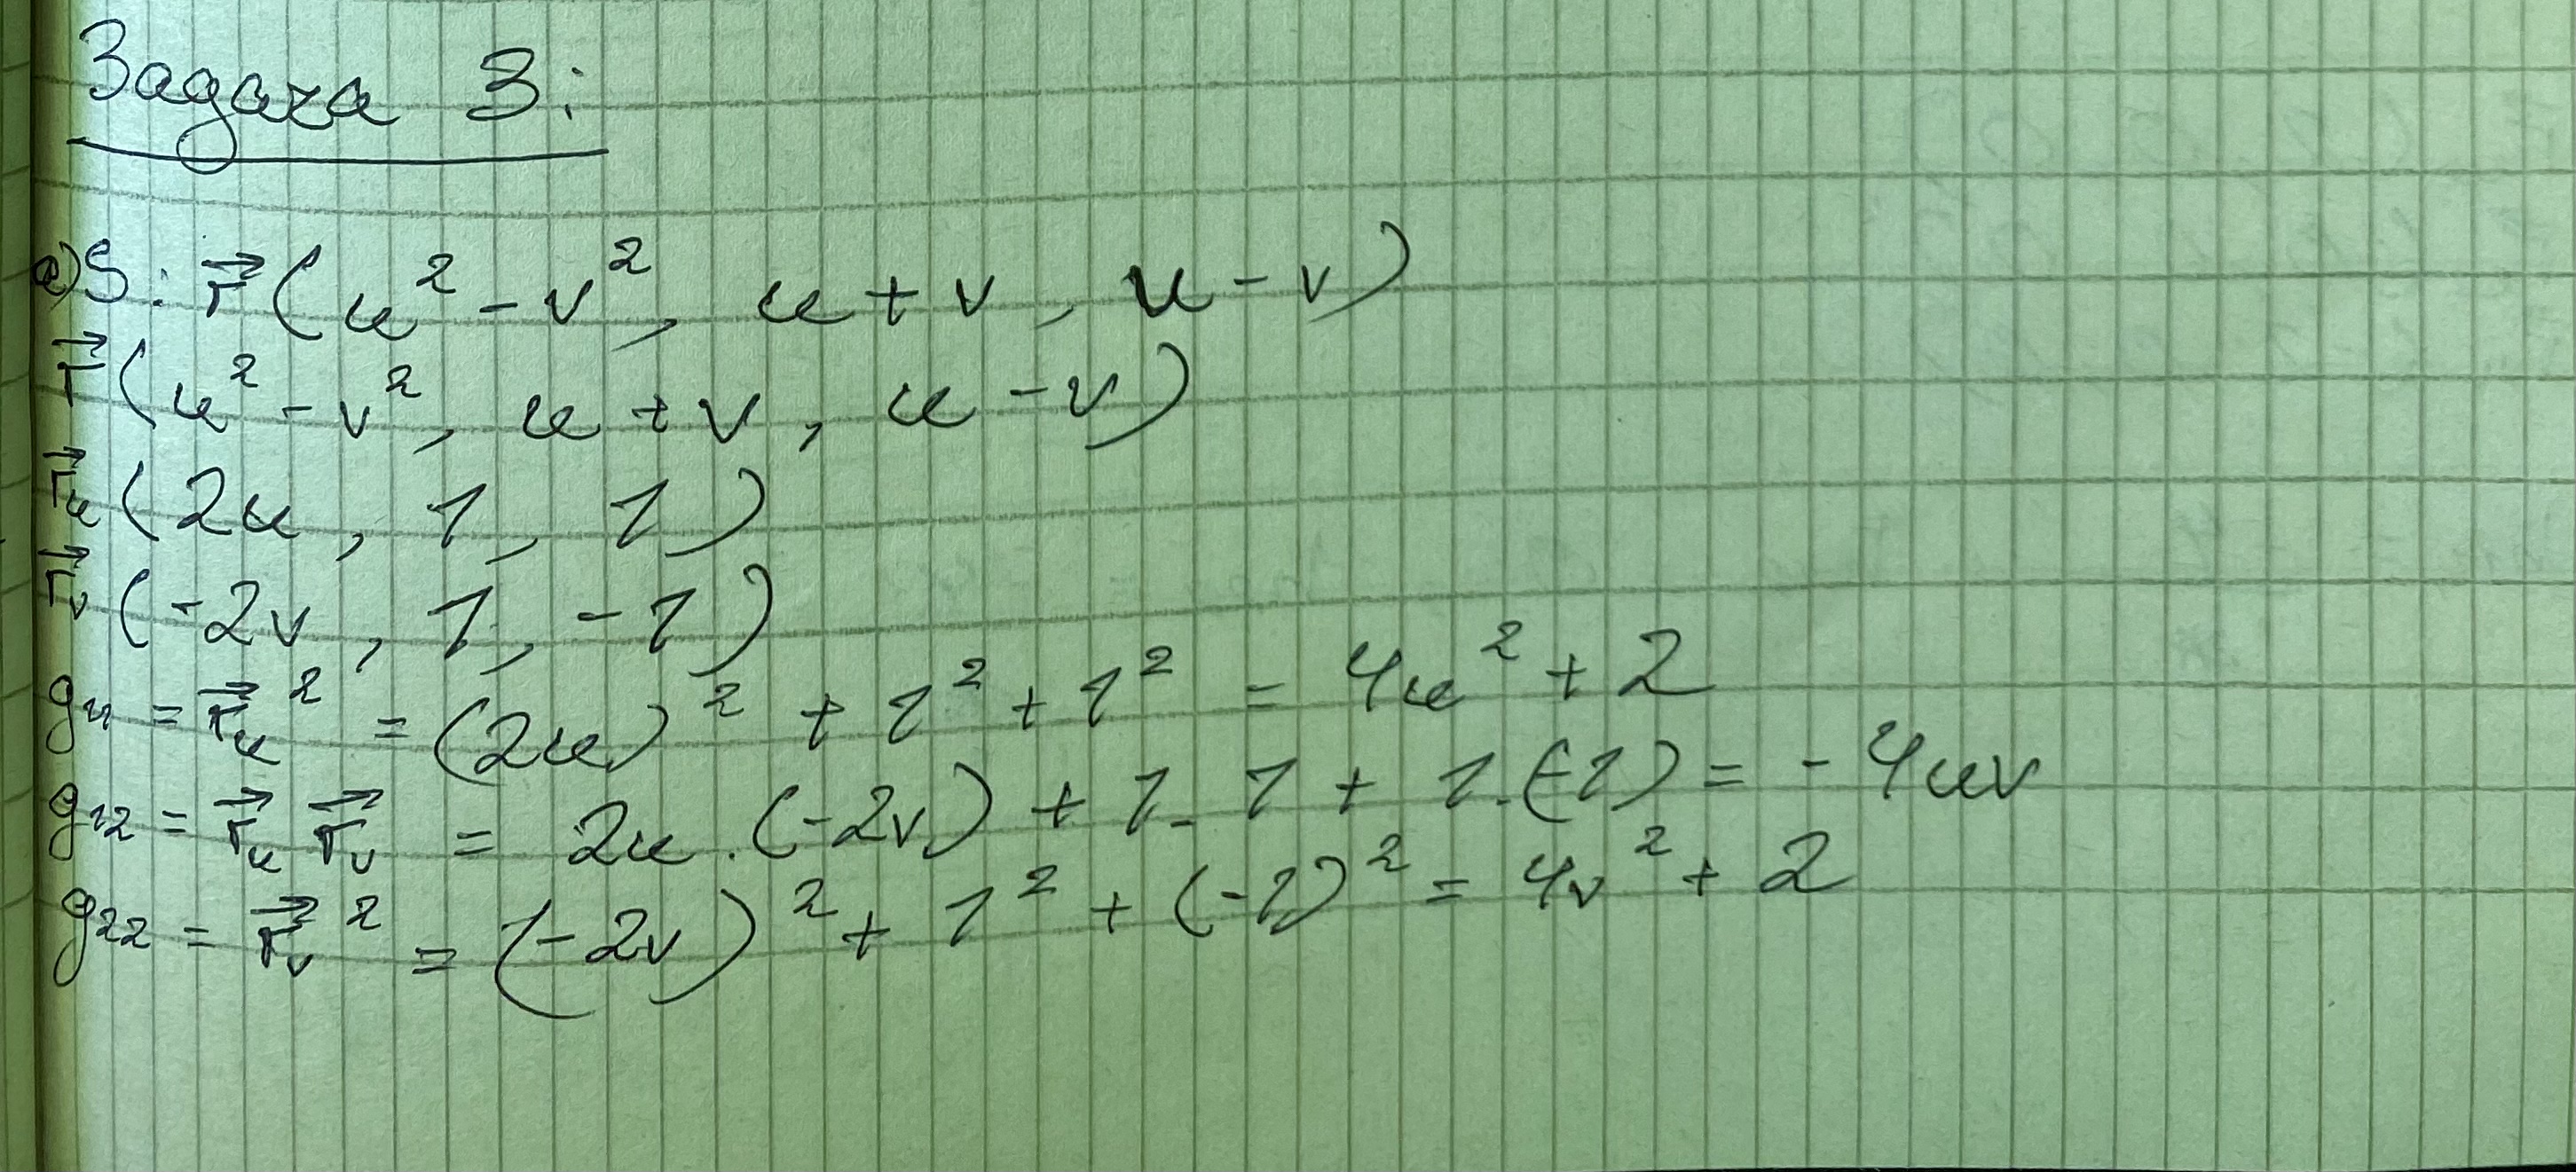 Задача 3:
а) S: r⃗ (u² - v², u + v, u - v)
r⃗ (u² - v², u + v, u - v)
r⃗ᵤ (2u, 1, 1)
r⃗ᵥ (-2v, 1, -1)
g₁₁ = r⃗ᵤ² = (2u)² + 1² + 1² = 4u² + 2
g₁₂ = r⃗ᵤ r⃗ᵥ = 2u . (-2v) + 1 . 1 + 1 . (-1) = - 4uv
g₂₂ = r⃗ᵥ² = (-2v)² + 1² + (-1)² = 4v² + 2